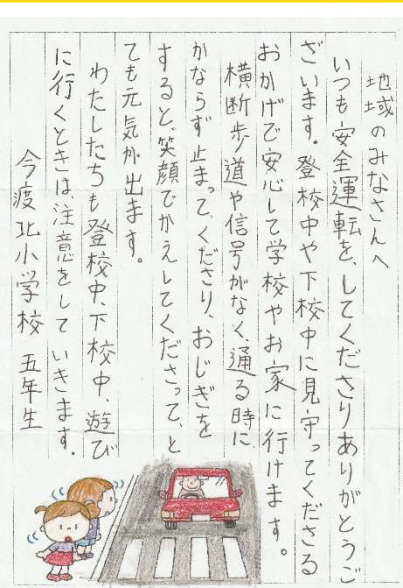 地域のみなさんへ
いつも安全運転を、してくださりありがとうご
ざいます。登校中や下校中に見守ってくださる
おかげで安心して学校やお家に行けます。
横断歩道や信号がなく、通る時に
かならず止まって、くださり、おじぎを
すると、笑顔でかえしてくださって、と
ても元気が出ます。
わたしたちも登校中、下校中、遊び
に行くときは、注意をしていきます。
今渡北小学校 五年生